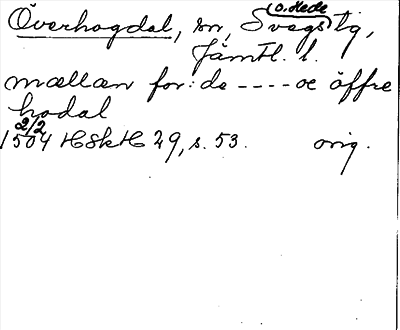 o. Hede
Överhogdal, sn, Svegs tg,
Jämtl. l.
mællæn for: da ---- oc öffre
hodal
2/2
1504 HSkH 29, s. 53. orig.